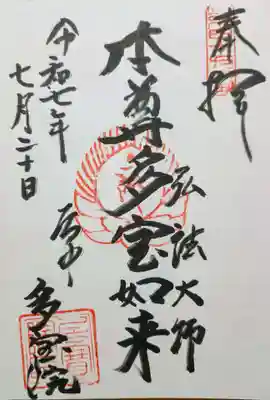 奉拝
本尊多宝如来
弘法大師
令和七年
七月二十日
多宝院